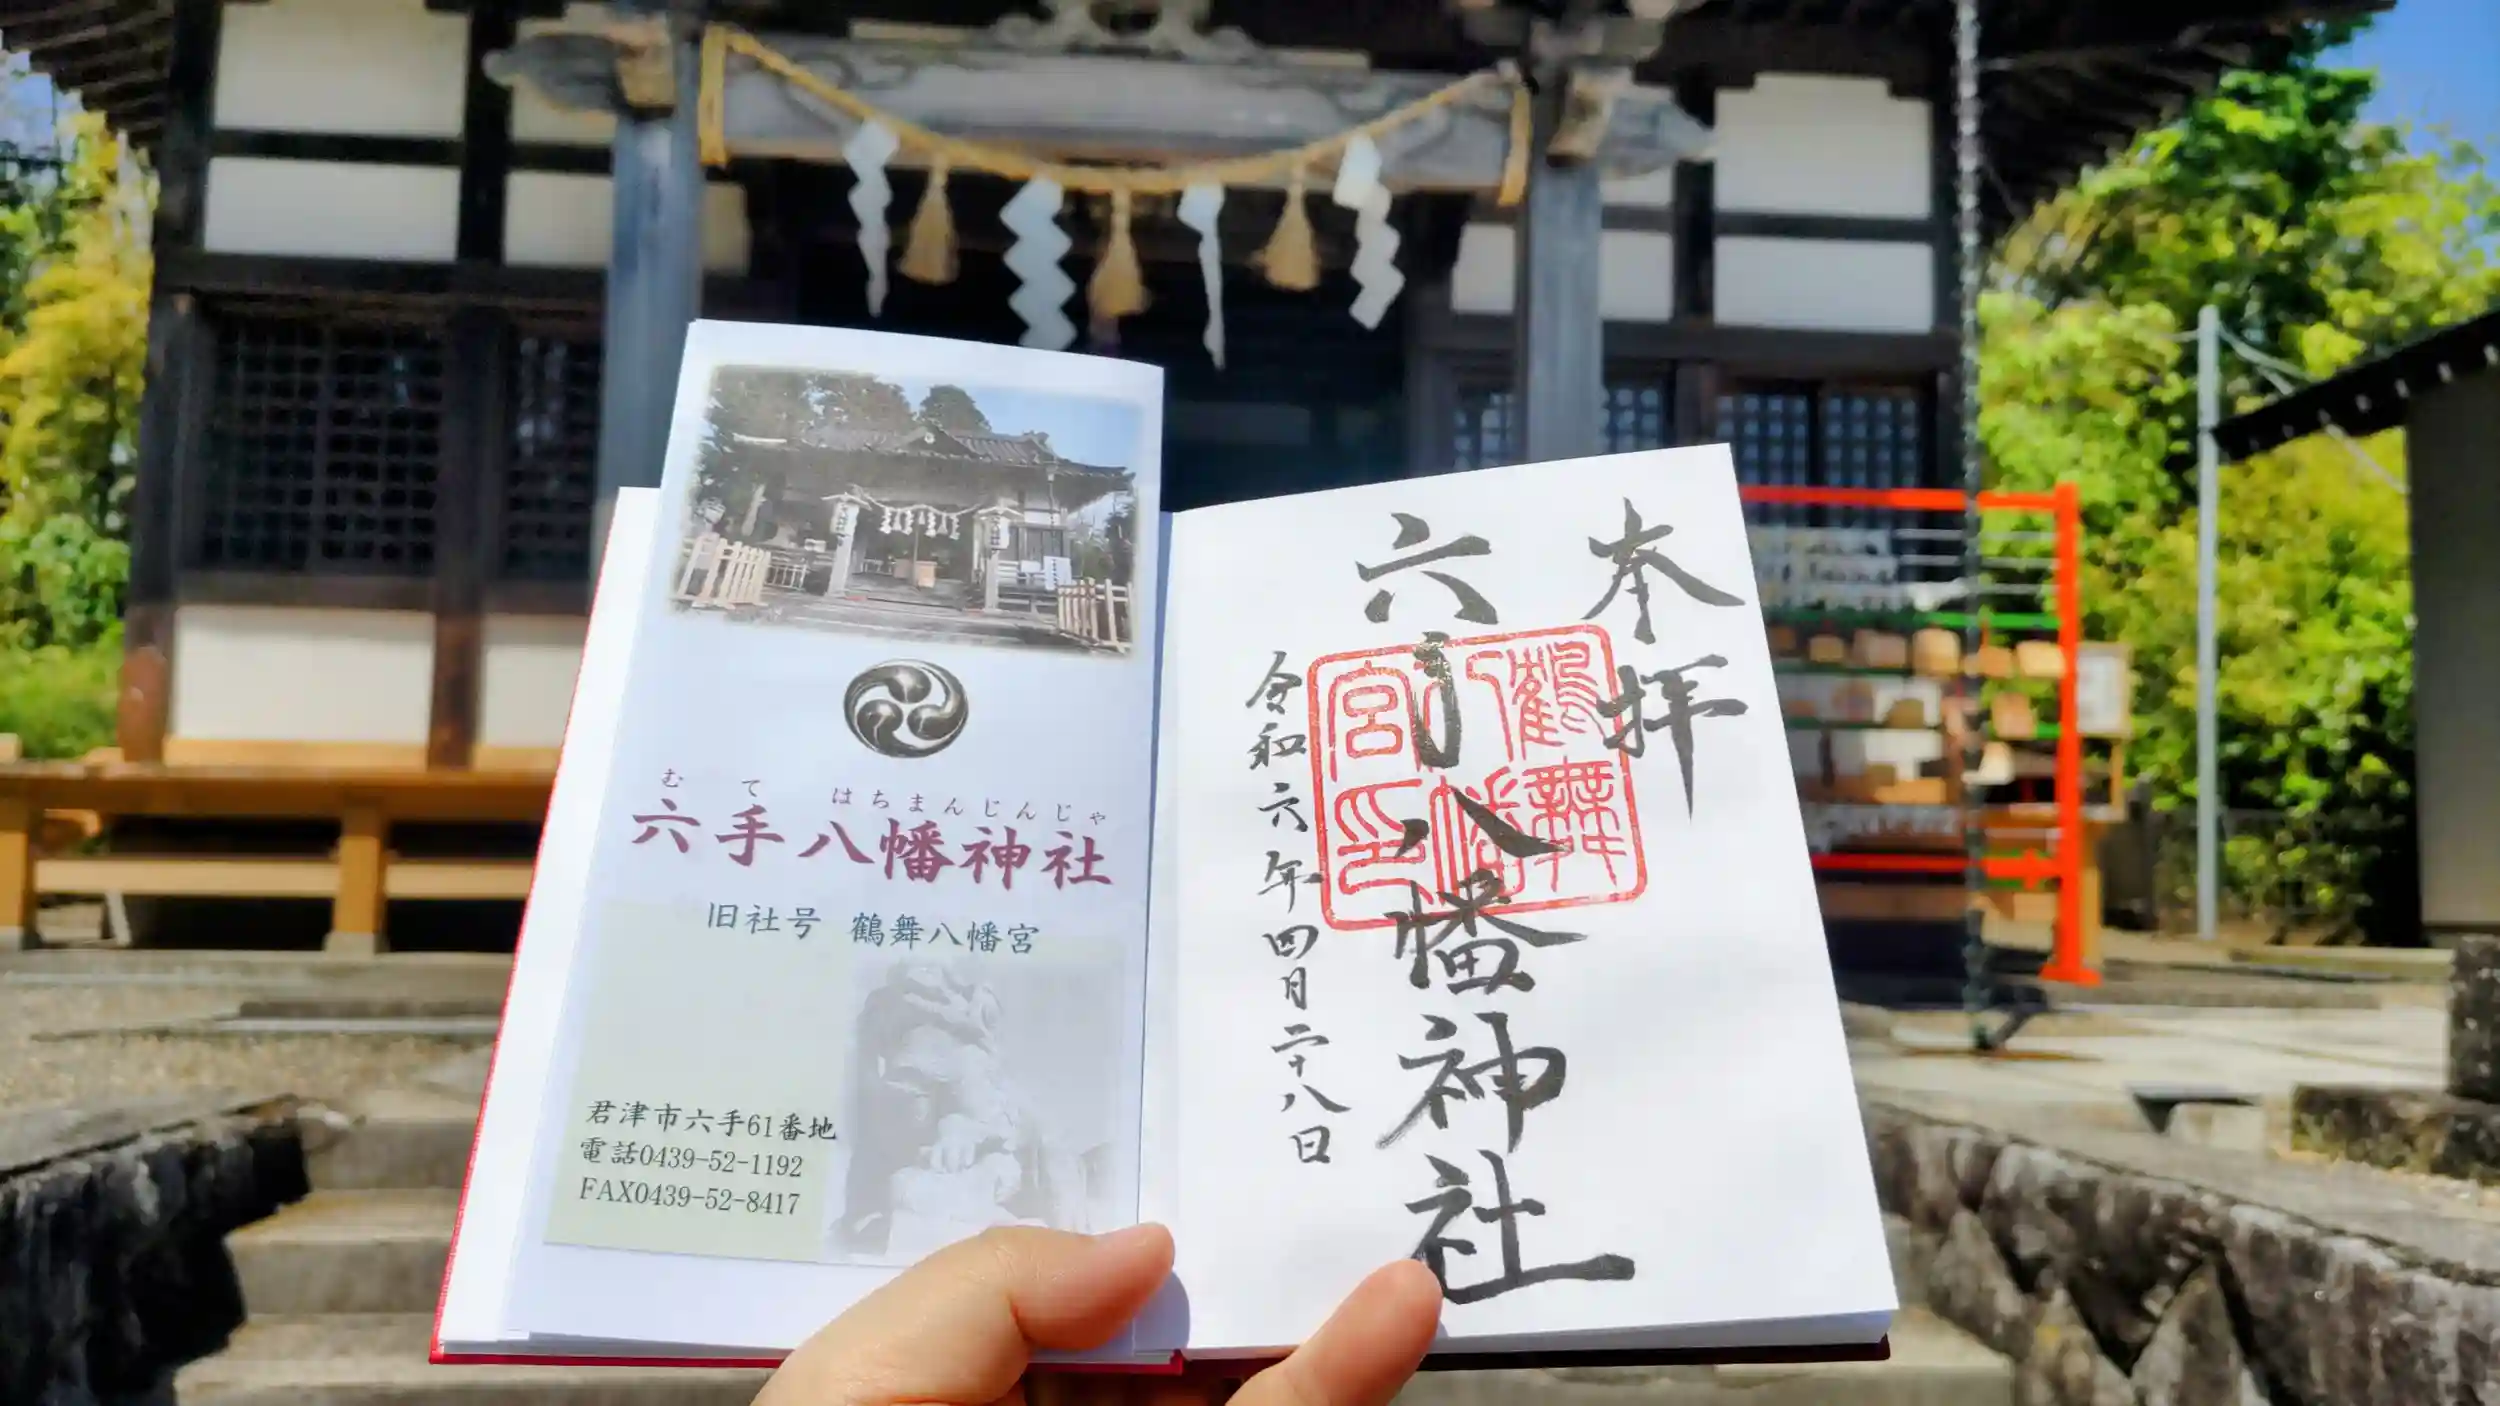 むて はちまんじんじゃ
六手八幡神社
旧社号 鶴舞八幡宮
君津市六手61番地
電話0439-52-1192
FAX0439-52-8417
奉拝
六手八幡神社
鶴舞
八幡
宮印
令和六年四月二十八日